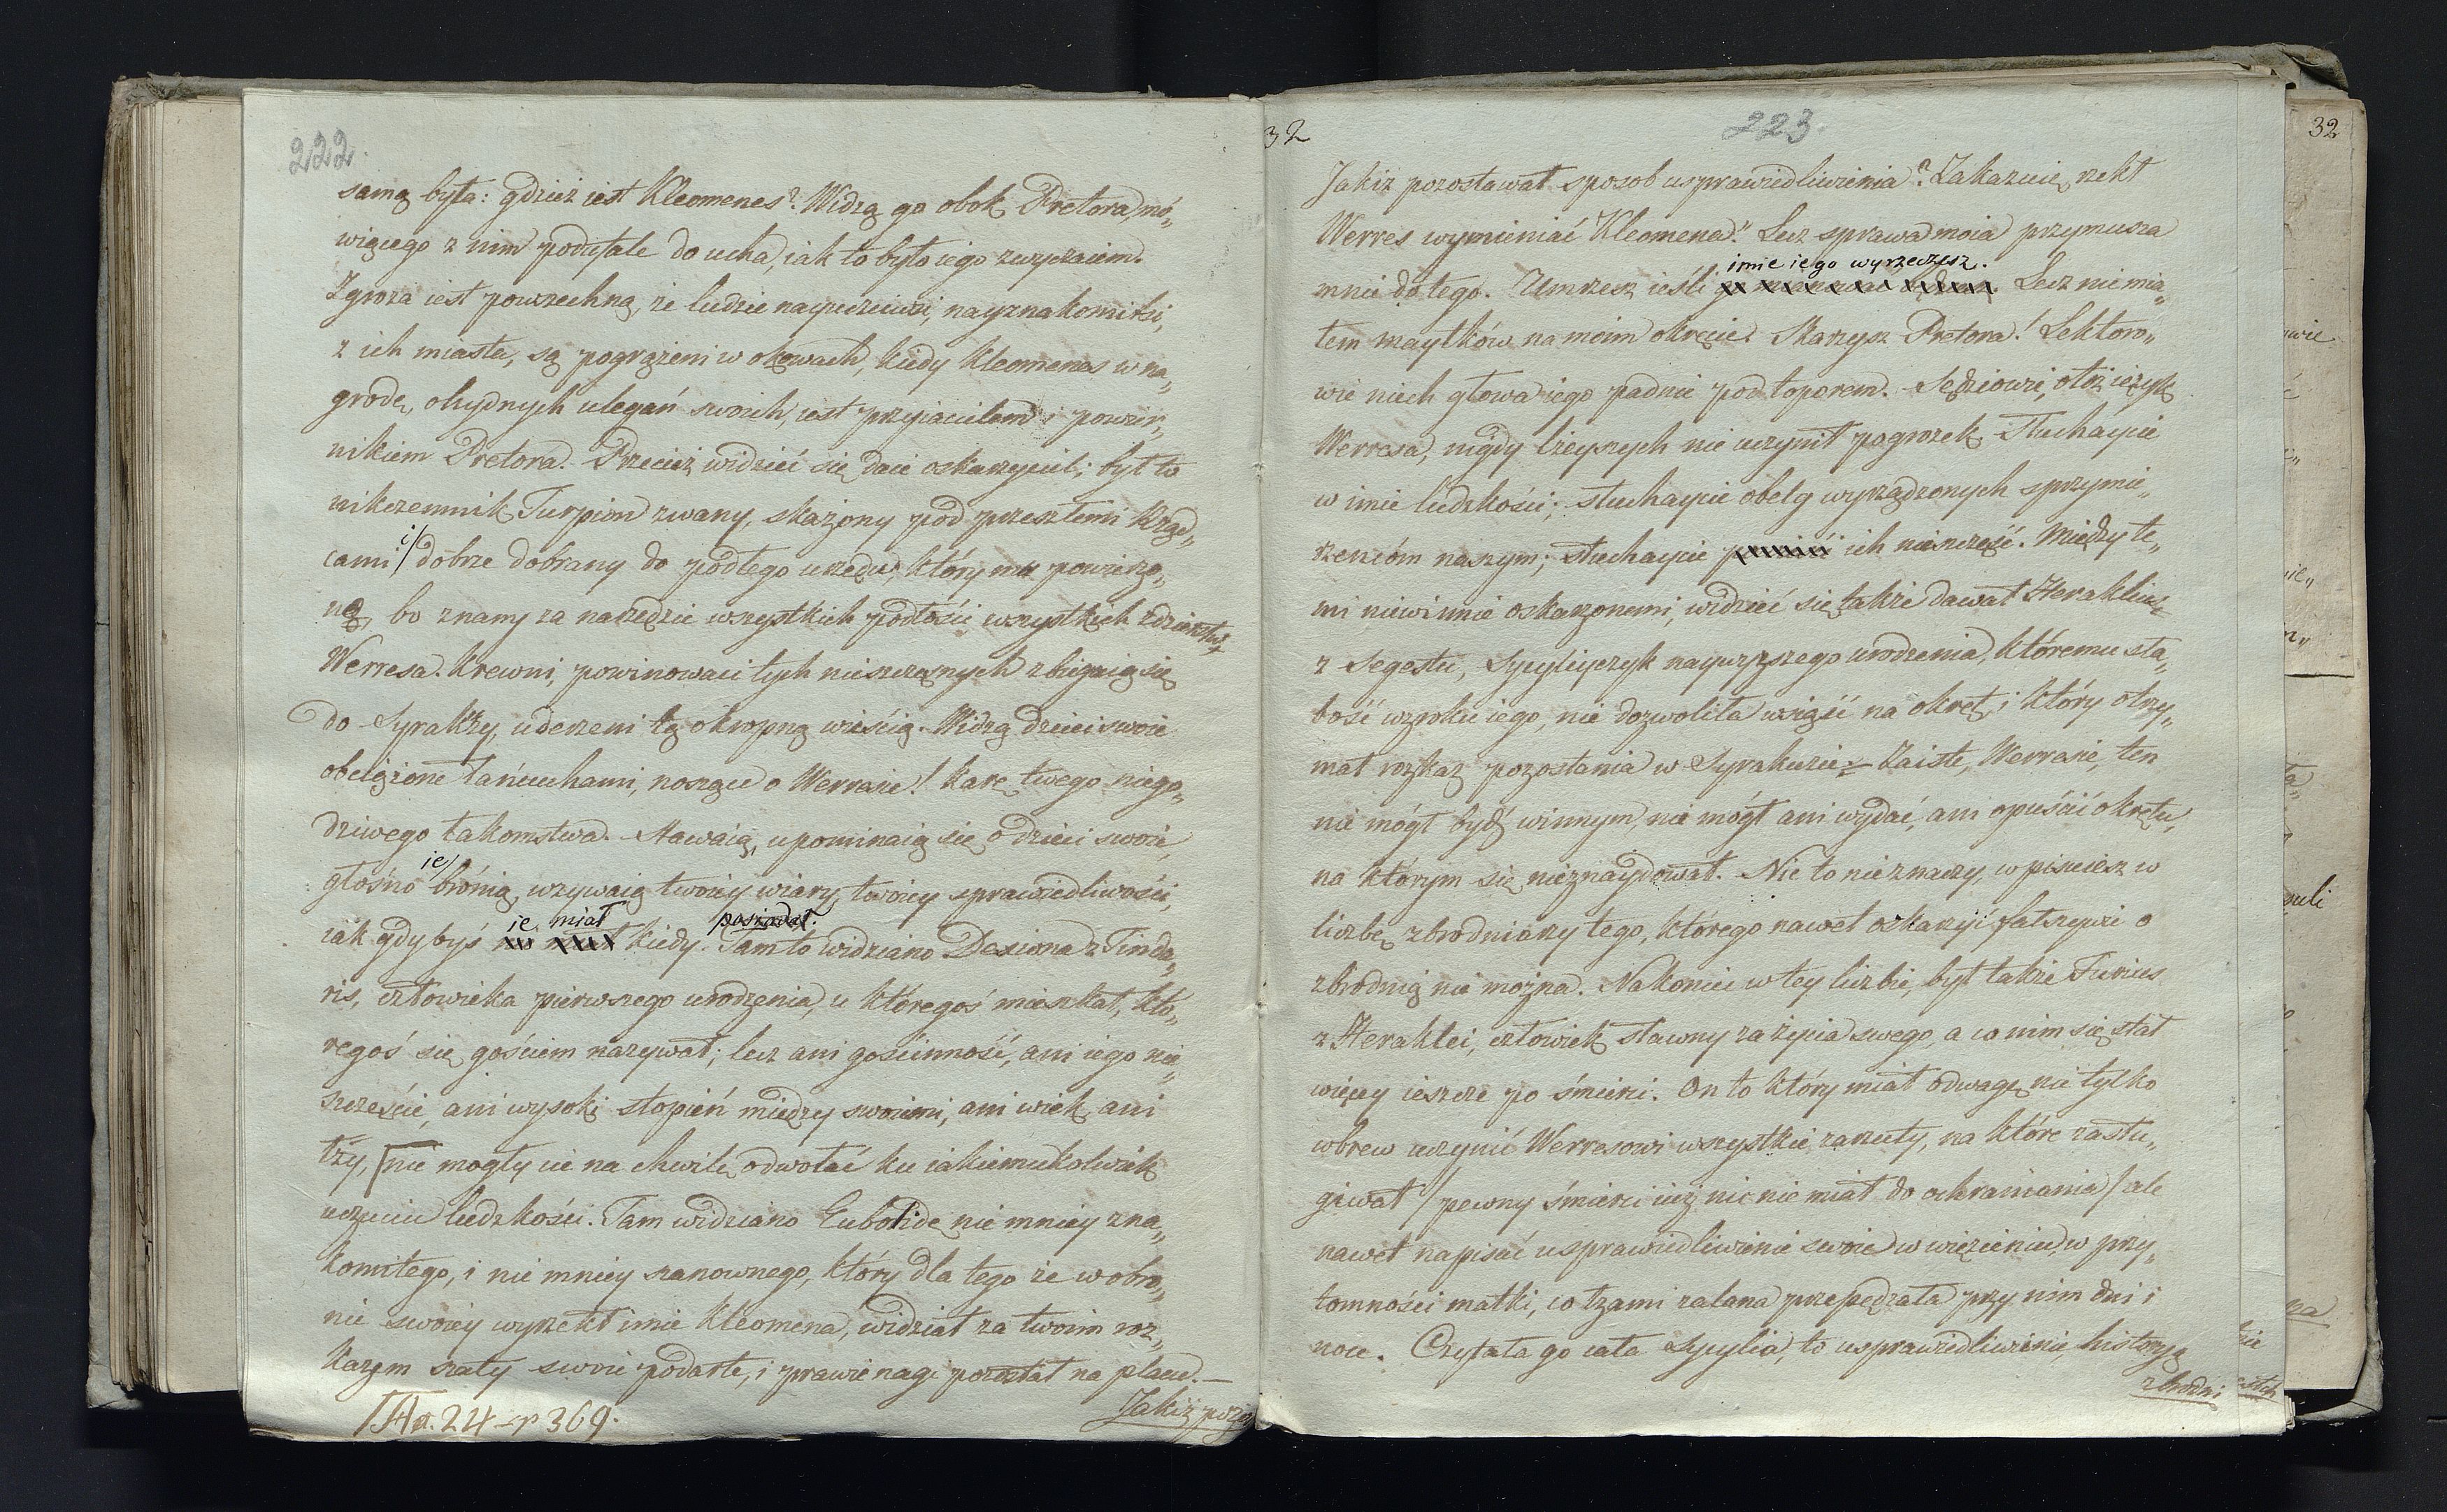 222.
samą była: gdzież iest Kleomenes? Widzą go obok Pretora, mó„
wiącego z nim poufale do ucha, iak to było iego zwyczaiem.
Zgroza iest powszechną, że ludzie naypoczciwsi, nayznakomitsi,
z ich miasta, są pogrążeni w okowach, kiedy Kleomenes w na„
grodę, ohydnych ulegań swoich, iest przyiacielem i powier„
nikiem Pretora. Przecież widzieć się daie oskarzyciel; był to
nikczemnik Turpion zwany, skażony pod przeszłemi Rząd„
cami i/ dobrze dobrany do podłego urzędu, który mu powierzo„
no, bo znany za narzędzie wszystkich podłości wszystkich zdzierstw
Werresa. Krewni, powinowaci tych nieszczęsnych zbiegaią się
do Syrakuzy, uderzeni tą okropną wieścią. Widzą dzieci swoie
obciążone łańcuchami, noszące o Werresie! karę twego niego„
dziwego łakomstwa. Stawaią, upominaią się o dzieci swoie,
głośno ie/ bronią, wzywaią twoiey wiary, twoiey sprawiedliwości
iak gdybyś ie miał kiedy posiadał. Tam to widziano Dexiona z Tinda„
ris, człowieka pierwszego urodzenia, u któregoś mieszkał, któ„
regoś się gościem nazywał; lecz ani gościnność, ani iego nie„
szczęście, ani wysoki stopień między swoiemi, ani wiek, ani
łzy, nie mogły cie na chwilę odwołać ku iakiemukolwiek
uczuciu ludzkości. Tam widziano Eubolidę nie mniey zna„
komitego, i nie mniey szanownego, który dla tego że w obro„
nie swoiey wyrzekł imie Kleomena, widział za twoim roz„
kazem szaty swoie podarte, i prawie nagi pozostał na placu.—
Jakiż pozo
THa. 24 - p 369.
32
223.
Jakiż pozostawał sposob usprawiedliwienia? Zakazuię, rzekł
Werres wymieniać Kleomena." Lecz sprawa moia przymusza
imie iego wyrzeczesz.
mnie do tego. Umrzesz ieśli Lecz nie mia„
łem maytków na moim okręcie. Skarzysz Pretora! Lektoro„
wie niech głowa iego padnie pod toporem. Sędziowie, otoż ięzyk
Werresa, nigdy lżeyszych nie uczynił pogrozek. Słuchaycie
w imie ludzkości; słuchaycie obelg wyrządzonych sprzymie„
rzencóm naszym; słuchaycie ich nieszczęść. Między te„
mi niewinnie oskarzonemi, widzieć się także dawał Heraklius
z Segestu, Sycyliyczyk naywyższego urodzenia, któremu sła„
bość wzroku iego, nie dozwoliła wsiąść na okręt, i który otrzy„
mał rozkaz pozostania w Syrakuzie.— Zaiste, Werresie, ten
nie mógł bydź winnym, nie mógł ani wydać, ani opuścić okrętu,
na którym się nieznaydował. Nic to nieznaczy, wpisuiesz w
liczbę zbrodniarzy tego, którego nawet oskarżyć fałszywie o
zbrodnią nie można. Nakoniec w tey liczbie, był także Furius
z Heraklei, człowiek sławny za życia swego, a co nim się stał
więcey ieszcze po śmierci. On to który miał odwagę nie tylko
wbrew uczynić Werresowi wszystkie zarzuty, na które zasłu„
giwał / pewny śmierci iuż nic nie miał do ochraniania / ale
nawet napisać usprawiedliwienie swoie w więzieniu, w przy„
tomności matki, co łzami zalana przepędzała przy nim dni i
noce. Czytała go cała Sycylia, to usprawiedliwienie, historyą
zbrodni
32